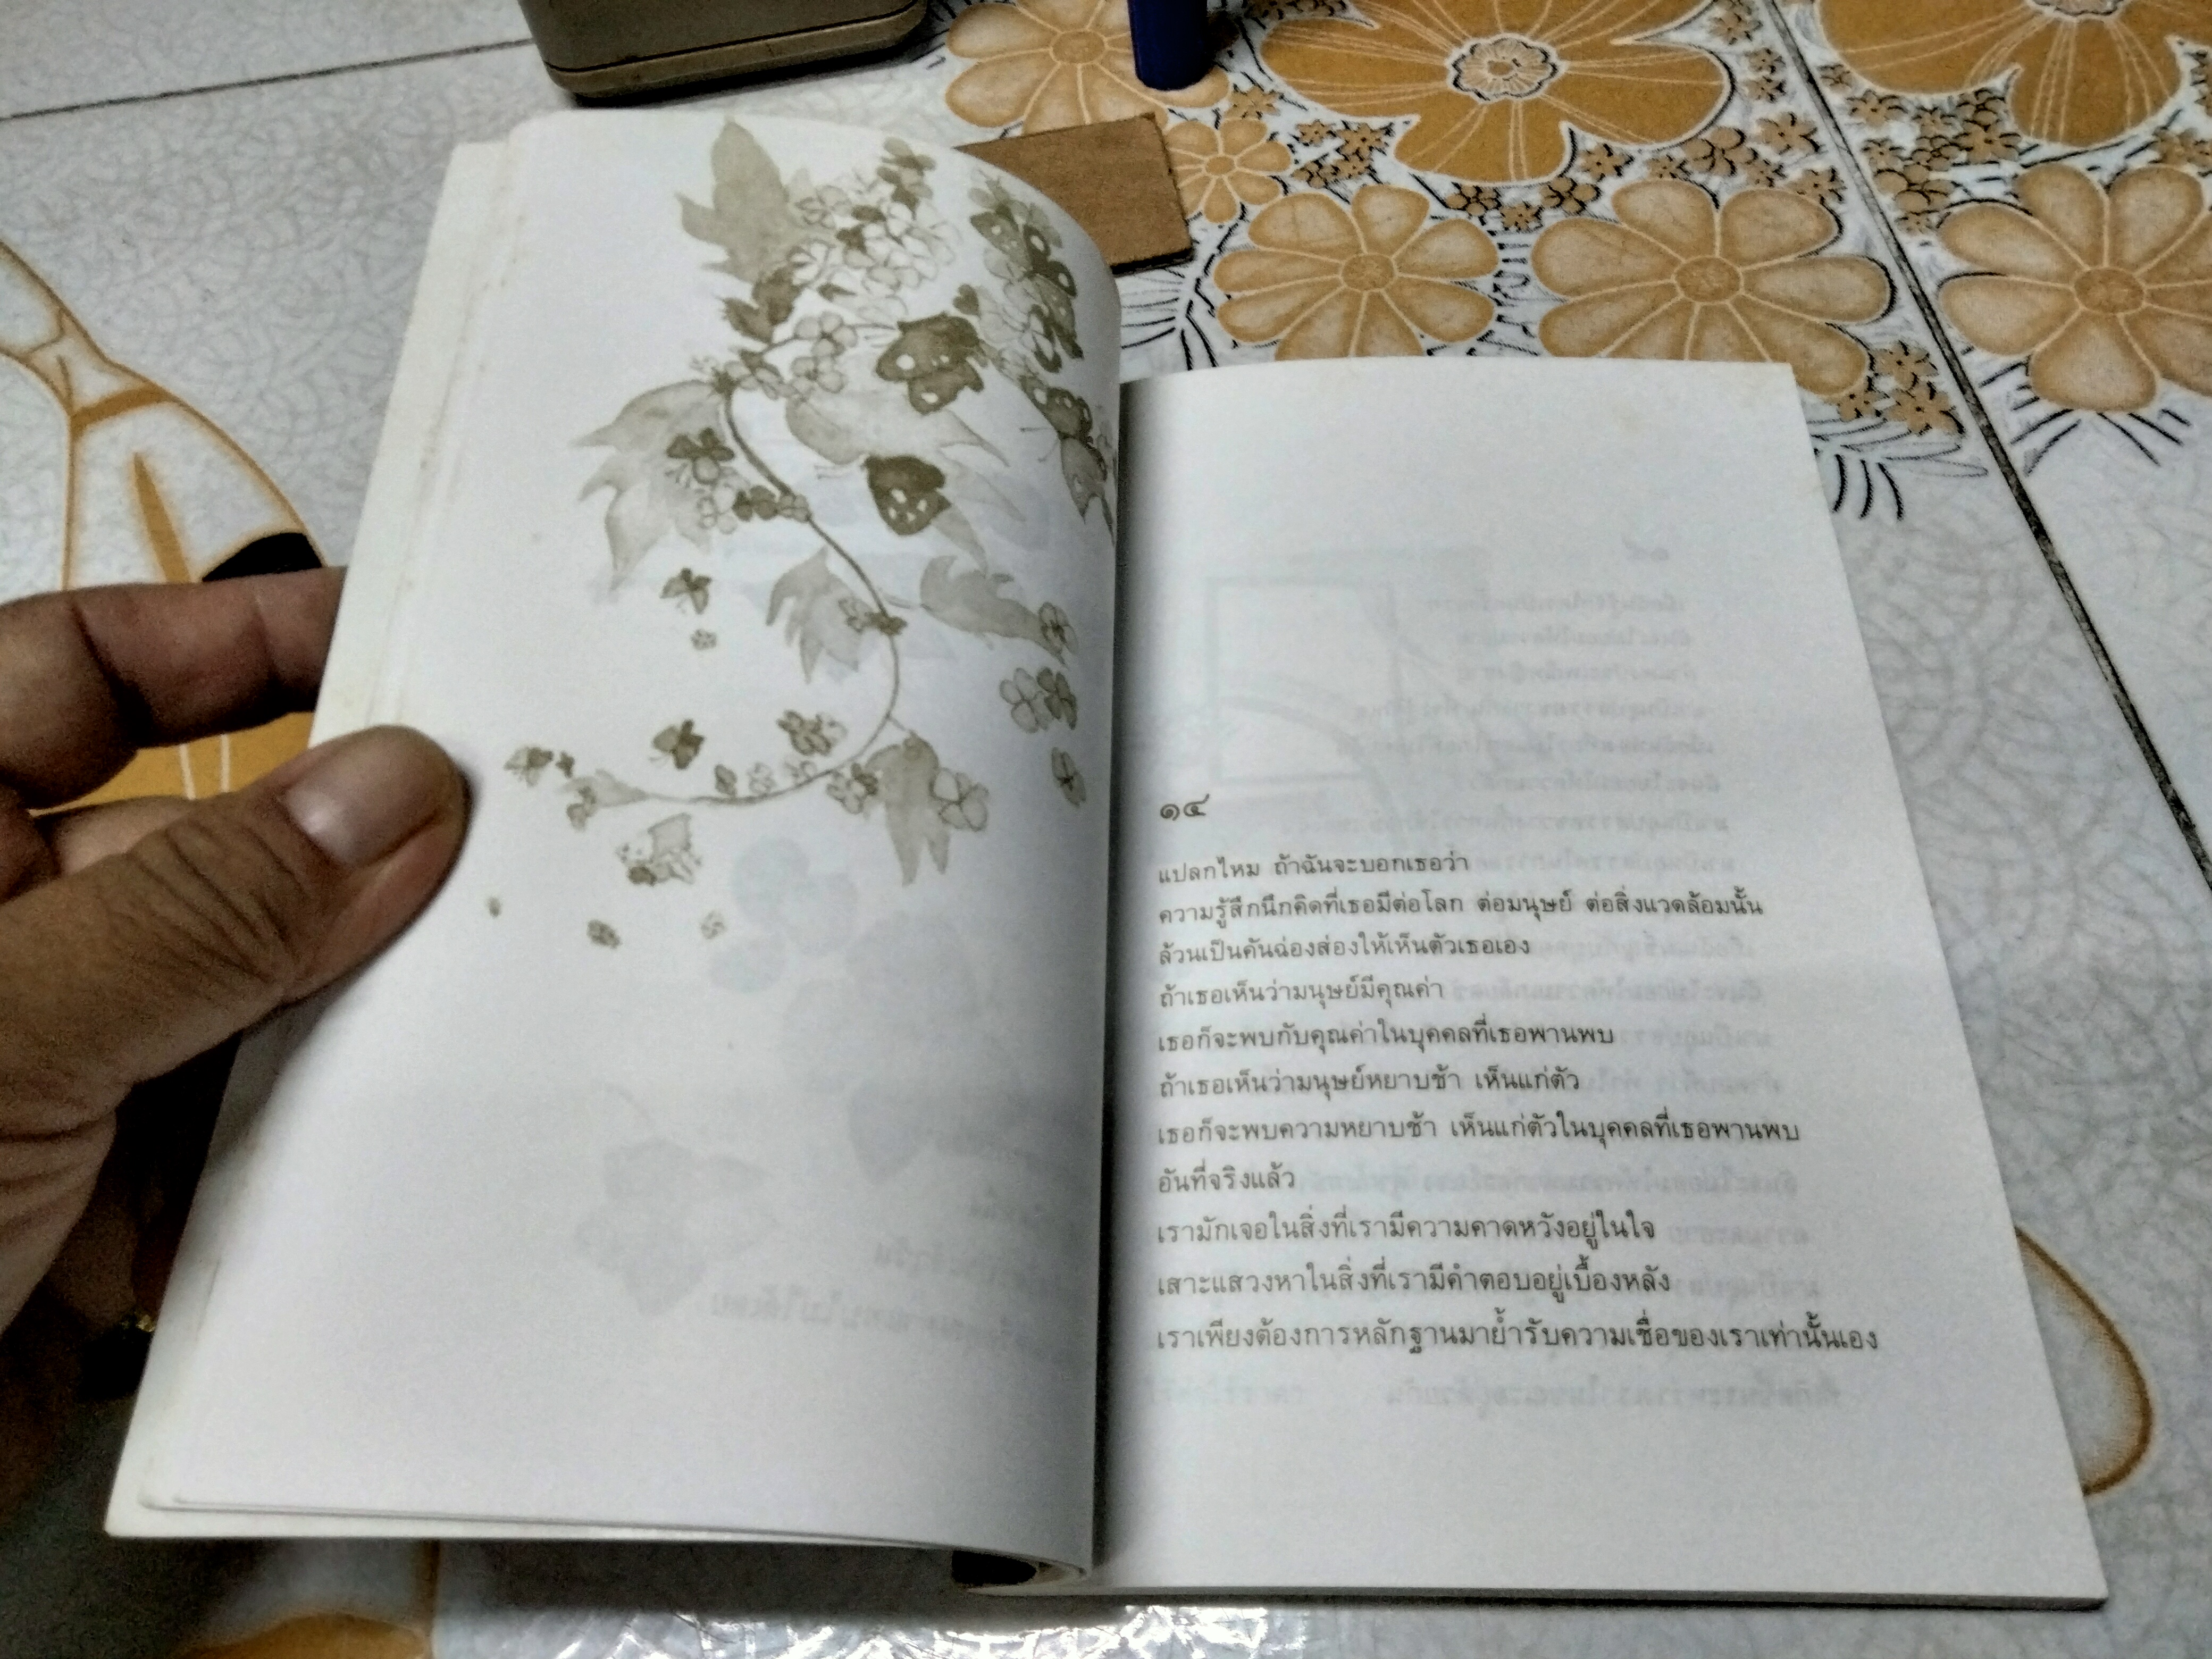 ๑๔
แปลกไหม ถ้าฉันจะบอกเธอว่า
ความรู้สึกนึกคิดที่เธอมีต่อโลก ต่อมนุษย์ ต่อสิ่งแวดล้อมนั้น
ล้วนเป็นคันฉ่องส่องให้เห็นตัวเธอเอง
ถ้าเธอเห็นว่ามนุษย์มีคุณค่า
เธอก็จะพบกับคุณค่าในบุคคลที่เธอพานพบ
ถ้าเธอเห็นว่ามนุษย์หยาบช้า เห็นแก่ตัว
เธอก็จะพบความหยาบช้า เห็นแก่ตัวในบุคคลที่เธอพานพบ
อันที่จริงแล้ว
เรามักเจอในสิ่งที่เรามีความคาดหวังอยู่ในใจ
เสาะแสวงหาในสิ่งที่เรามีคำตอบอยู่เบื้องหลัง
เราเพียงต้องการหลักฐานมาย้ำรับความเชื่อของเราเท่านั้นเอง